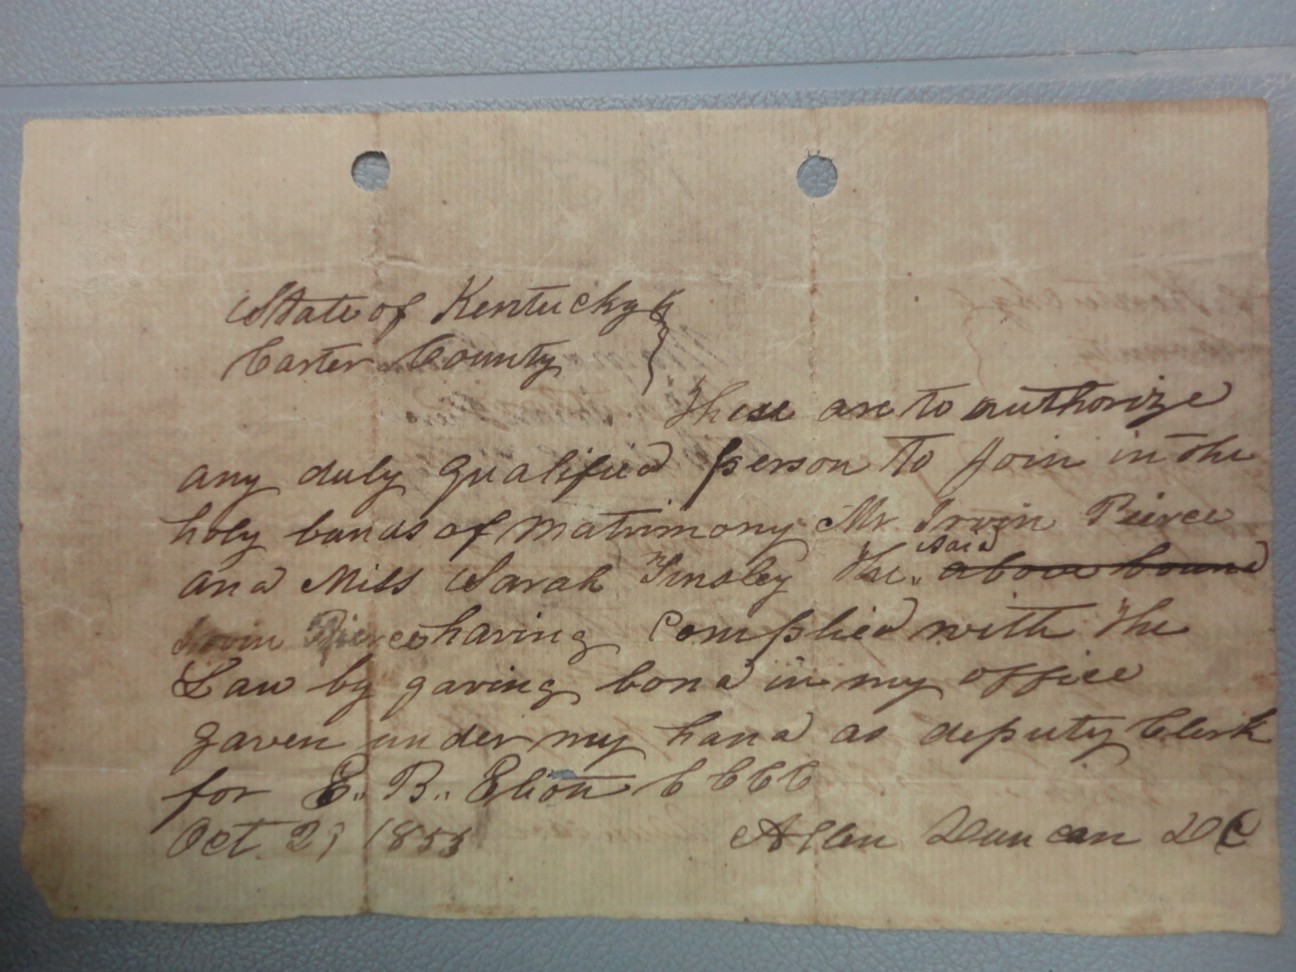 State of Kentucky
Carter County
These are to authorize
any duly qualified person to Join in the
holy bands of matrimony Mr. Irvin Pierce
and Miss Sarah Tinsley the said above bound
Irvin Pierce having Complied with the
Law by gaving bond in my office
gaven under my hand as deputy Clerk
for E. B. Elion C C C C
Oct. 1853 Allen Duncan DC